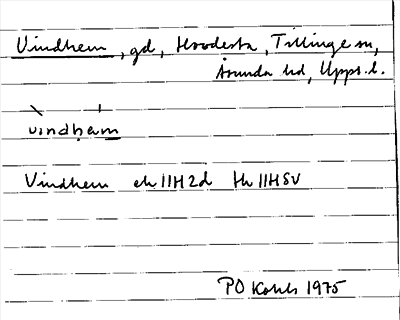 Vindhem, gd, Hovdesta, Tillinge sn,
Åsunda hd, Upps. l.
vindhem
Vindhem ek 11H2d th 11HSV
PO Kohls 1975